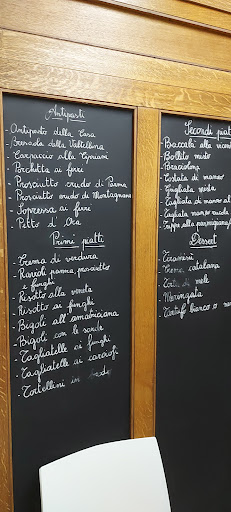 Antipasti
- Antipasto della Casa
- Bresaola della Valtellina
- Carpaccio alla Cipriani
- Porchetta ai ferri
- Prosciutto crudo di Parma
- Prosciutto crudo di Montagnana
- Sopressa ai ferri
- Petto d'Oca
Primi piatti
- Crema di verdura
- Ravioli panna prosciutto
e funghi
- Risotto alla veneta
- Risotto ai funghi
- Bigoli all'amatriciana
- Bigoli con le sarde
- Tagliatelle ai funghi
- Tagliatelle ai carciofi
- Tortellini in brodo
Secondi piat
- Baccalà alla vicent
- Bollito misto
- Braciolona
- Costata di manzo
- Grigliata mista
- Tagliata di manzo al
- Tagliata manzo rucola
- Trippe alla parmigiana
Dessert
- Tiramisù
- Crema catalana
- Torta di mele
- Meringata
- Tartufo bianco o ner